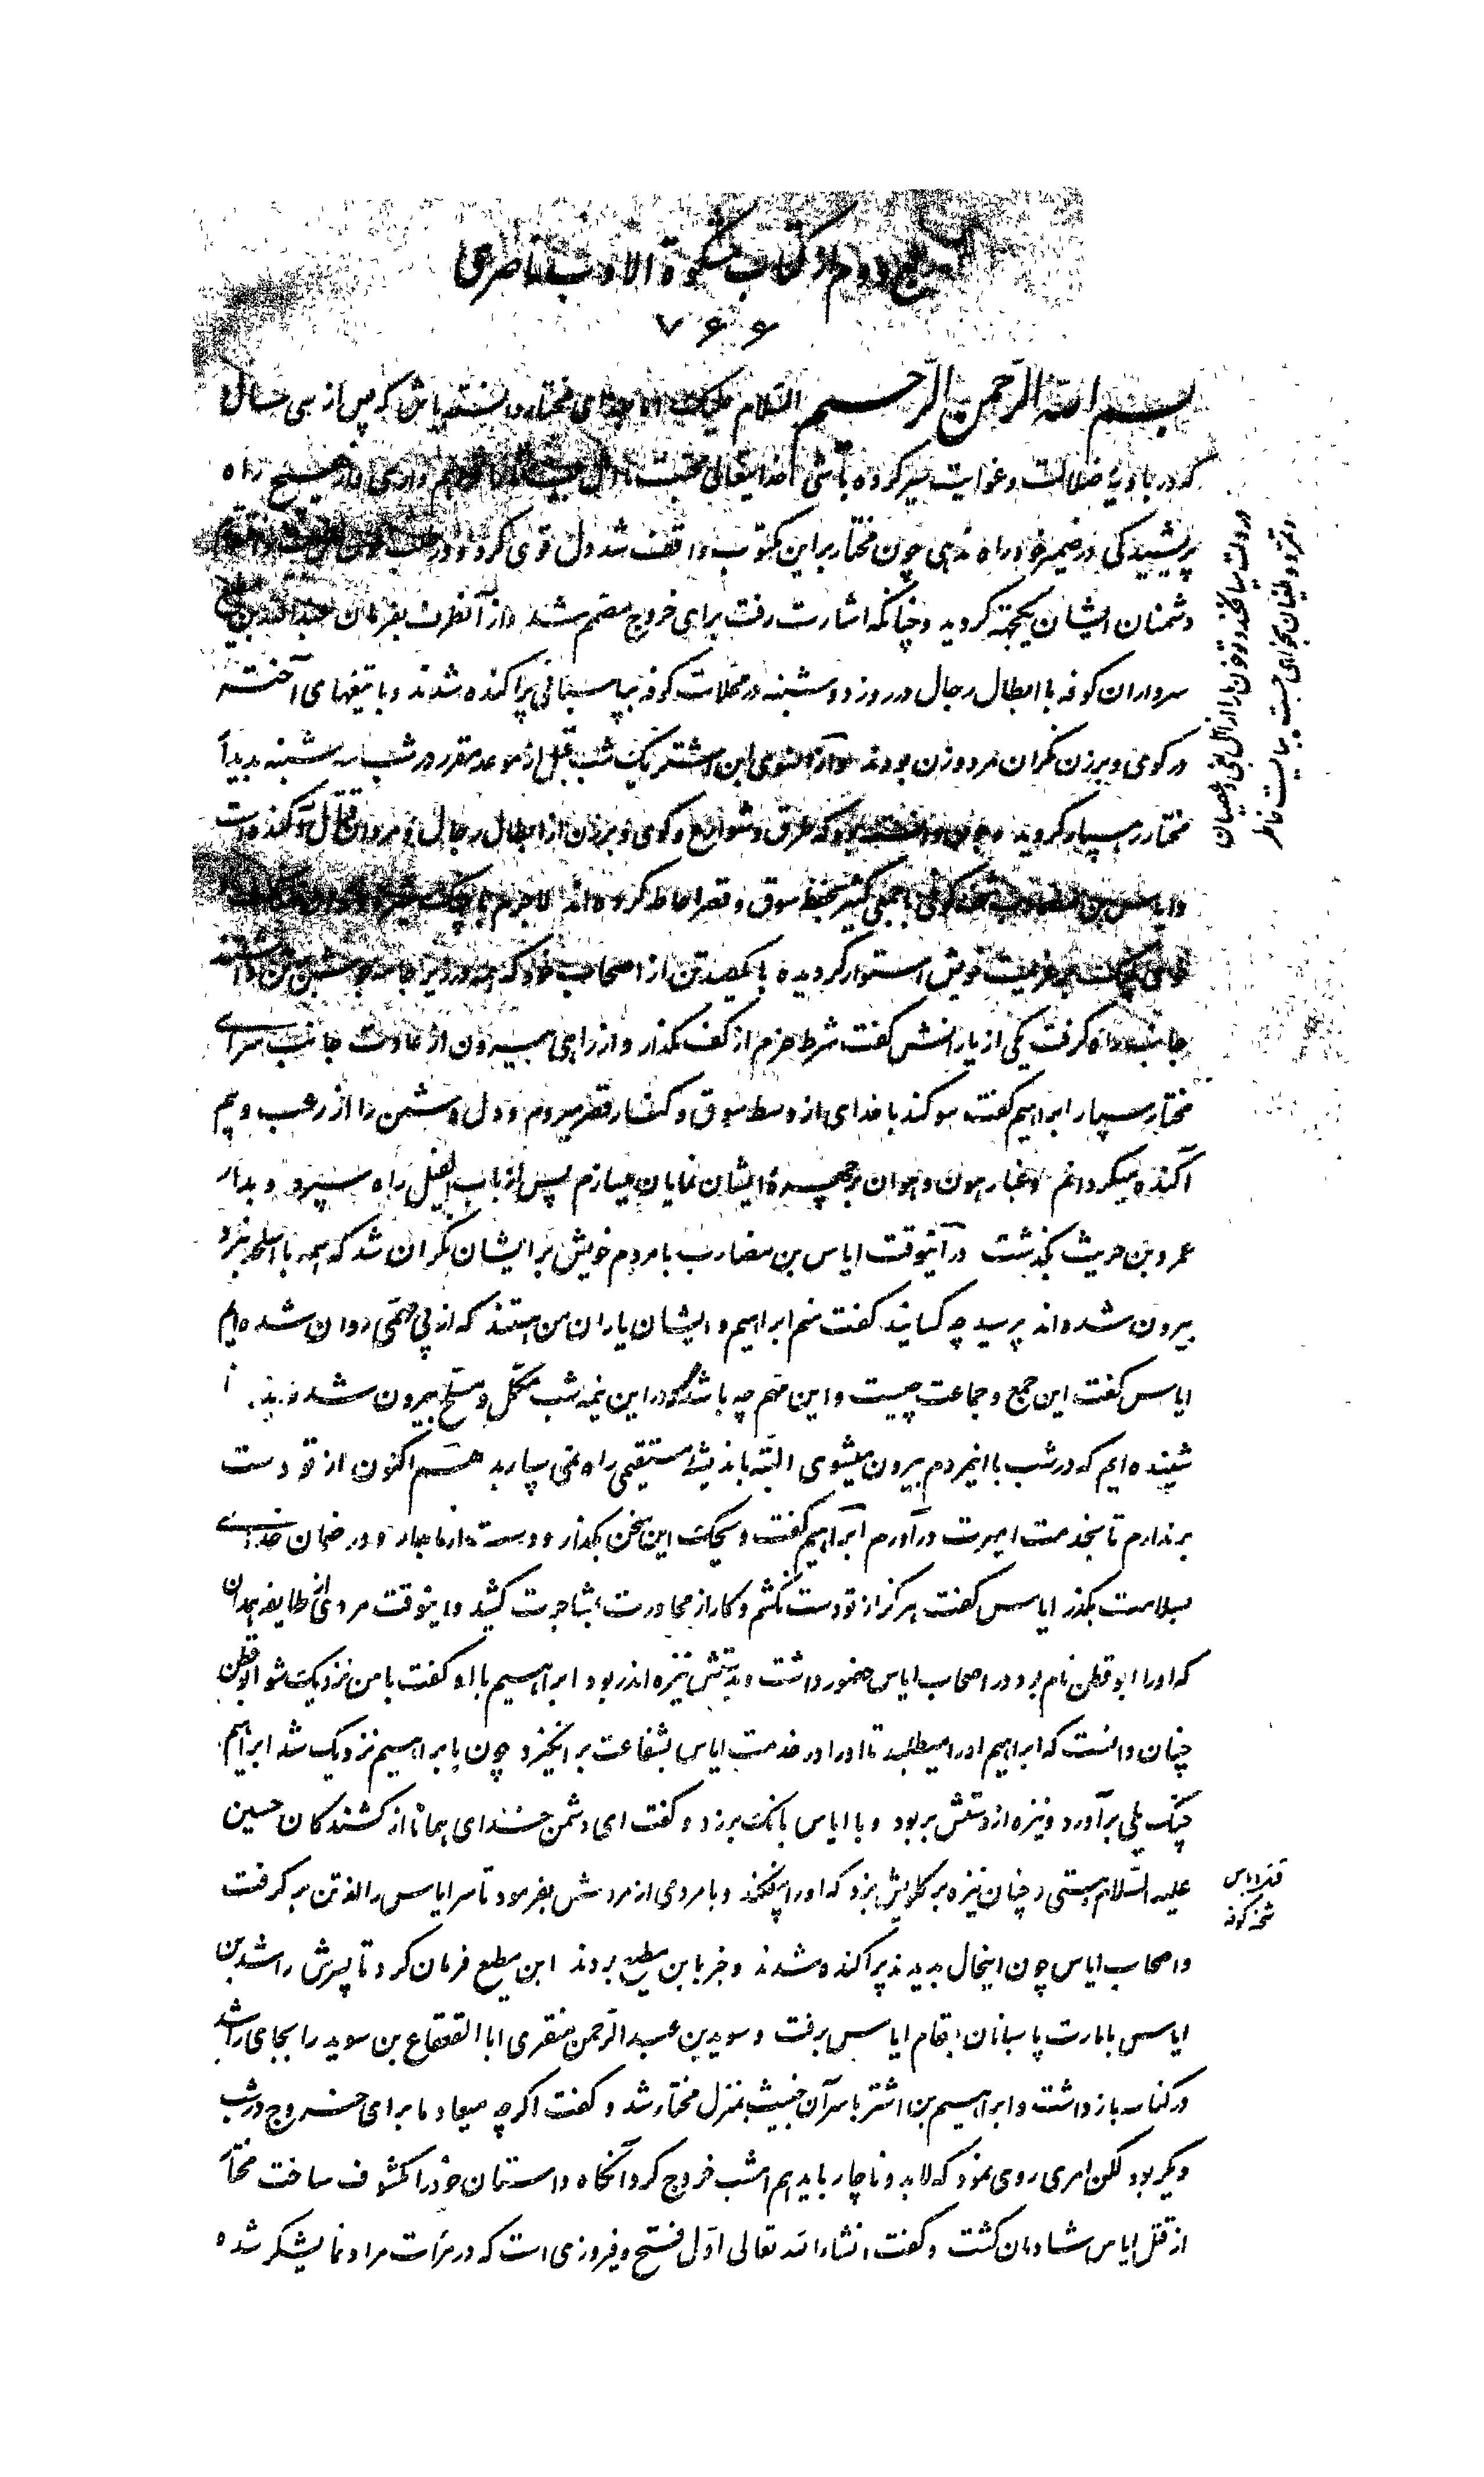 ربع دوم از کتاب مشکوة الادب ناصری
۷۶۶
بسم الله الرحمن الرحیم السلام علیک اما بعد ای مختار دانسته باش که پس از سی سال
که در بادیه ضلالت و غوایت سیر کرده باشی خدایتعالی محبت ما اهل بیت را داری و از هیچ راه
پریشیدگی در ضمیر خود راه ندهی چون مختار بر این مکتوب واقف شد دل قوی کرد و در طلب خون
دشمنان ایشان یکجهته گردید و چنانکه اشارت رفت برای خروج مصمم شد و از آنطرف بفرمان عبدالله بن مطیع
سرداران کوفه با ابطال رجال در روز دوشنبه در محلات کوفه بپاسبانی پراکنده شدند و با تیغهای آخته
در کوی و برزن نگران مرد و زن بودند و از آنسوی ابن اشتر یک شب قبل از موعد مقرر در شب سه شنبه بدیدار
مختار رهسپار گردید و چون دانسته بود که طرق و شوارع و کوی و برزن از ابطال رجال و مردان قتال آکنده است
و ایاس بن مضارب شحنه کوفی با جمعی کثیر بحفظ سوق و قصر احاطه کرده اند لاجرم با
بر عزیمت خویش استوار گردیده با یکصد تن از اصحاب خود که همه در زیر جامه جوشن بر تن داشتند
جانب راه گرفت یکی از یارانش گفت شرط حزم از کف مگذار و از راهی بیرون از عادت جانب سرای
مختار سپار ابراهیم گفت سوگند با خدای از وسط سوق و کنار قصر میروم و دل دشمن را از رعب و بیم
آکنده میگردانم و غبار هون و هوان بر چهره ایشان نمایان میسازم پس از باب الفیل راه سپرد و بدار
عمرو بن حریث بگذشت در آنوقت ایاس بن مضارب با مردم خویش بر ایشان نگران شد که همه با اسلحه نبرد
بیرون شده اند پرسید چه کسانید گفت منم ابراهیم و ایشان یاران من هستند که از پی مهمی روان شده ایم
ایاس گفت این جمع و جماعت چیست و این مهم چه باشد که در این نیمه شب مکمل و مسلح بیرون شده اید
شنیده ایم که در شب با اینمردم بیرون میشوی البته باندیشه مستقیمی راه نمی سپارید هم اکنون از تو دست
برندارم تا بخدمت امیرت درآورم ابراهیم گفت ویحک این سخن بگذار و دست از ما بدار و در ضمان خدای
بسلامت بگذر ایاس گفت هرگز از تو دست نکشم و کار از محاورت بمشاجرت کشید و اینوقت مردی از طایفه همدان
که او را ابو قطن نام بود در اصحاب ایاس حضور داشت و بدستش نیزه اندر بود ابراهیم با او گفت با من نزدیک شو ابو قطن
چنان دانست که ابراهیم او را میطلبد تا او را در خدمت ایاس بشفاعت برانگیزد چون با ابراهیم نزدیک شد ابراهیم
چنگ یلی برآورد و نیزه از دستش بربود و با ایاس بانگ برزد و گفت ای دشمن خدای همانا از کشندگان حسین
علیه السلام هستی و چنان نیزه بر گلویش بزد که او را بیفکند و با مردی از مردمش بفرمود تا سر ایاس را از تن برگرفت
و اصحاب ایاس چون اینحال بدیدند پراکنده شدند و خبر با ابن مطیع بردند ابن مطیع فرمان کرد تا پسرش راشد بن
ایاس بامارت پاسبانان بمقام ایاس برفت و سوید بن عبدالرحمن منقری ابا القعقاع بن سوید را بجای راشد
در کناسه بازداشت و ابراهیم بن اشتر با سر آن خبیث بمنزل مختار شد و گفت اگرچه میعاد ما برای خروج در شب
دیگر بود لکن امری روی نمود که لابد و ناچار باید هم امشب خروج کرد آنگاه داستان خود را مکشوف ساخت مختار
از قتل ایاس شادمان گشت و گفت انشاء الله تعالی اول فتح و فیروزی است که در مرآت مراد نمایشگر شده
قتل ایاس
شحنه کوفه